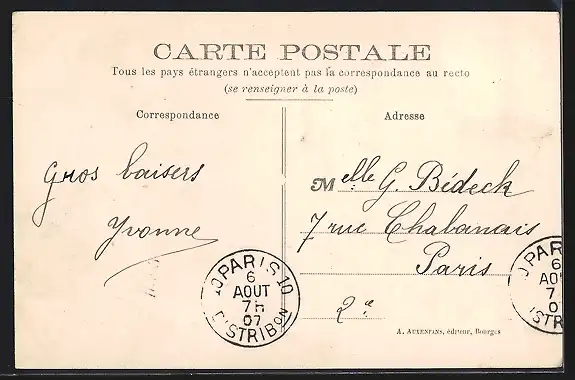 CARTE POSTALE
Tous les pays étrangers n'acceptent pas la correspondance au recto
(se renseigner à la poste)
Correspondance
Adresse
Gros baisers
Yvonne
Melle G. Bédeck
7 rue Chabanais
Paris
2e
10 PARIS 10
6
AOUT
7H
07
DISTRIBON
PAR
6
AO
7
0
ISTR
A. AUXENFANS, éditeur, Bourges